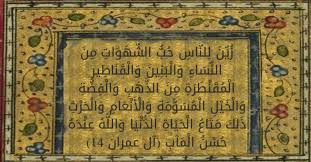 زُيِّنَ لِلنَّاسِ حُبُّ الشَّهَوَاتِ مِنَ
النِّسَاءِ وَالْبَنِينَ وَالْقَنَاطِيرِ
الْمُقَنْطَرَةِ مِنَ الذَّهَبِ وَالْفِضَّةِ
وَالْخَيْلِ الْمُسَوَّمَةِ وَالْأَنْعَامِ وَالْحَرْثِ
ذَلِكَ مَتَاعُ الْحَيَاةِ الدُّنْيَا وَاللَّهُ عِنْدَهُ
حُسْنُ الْمَآبِ (آل عمران 14)